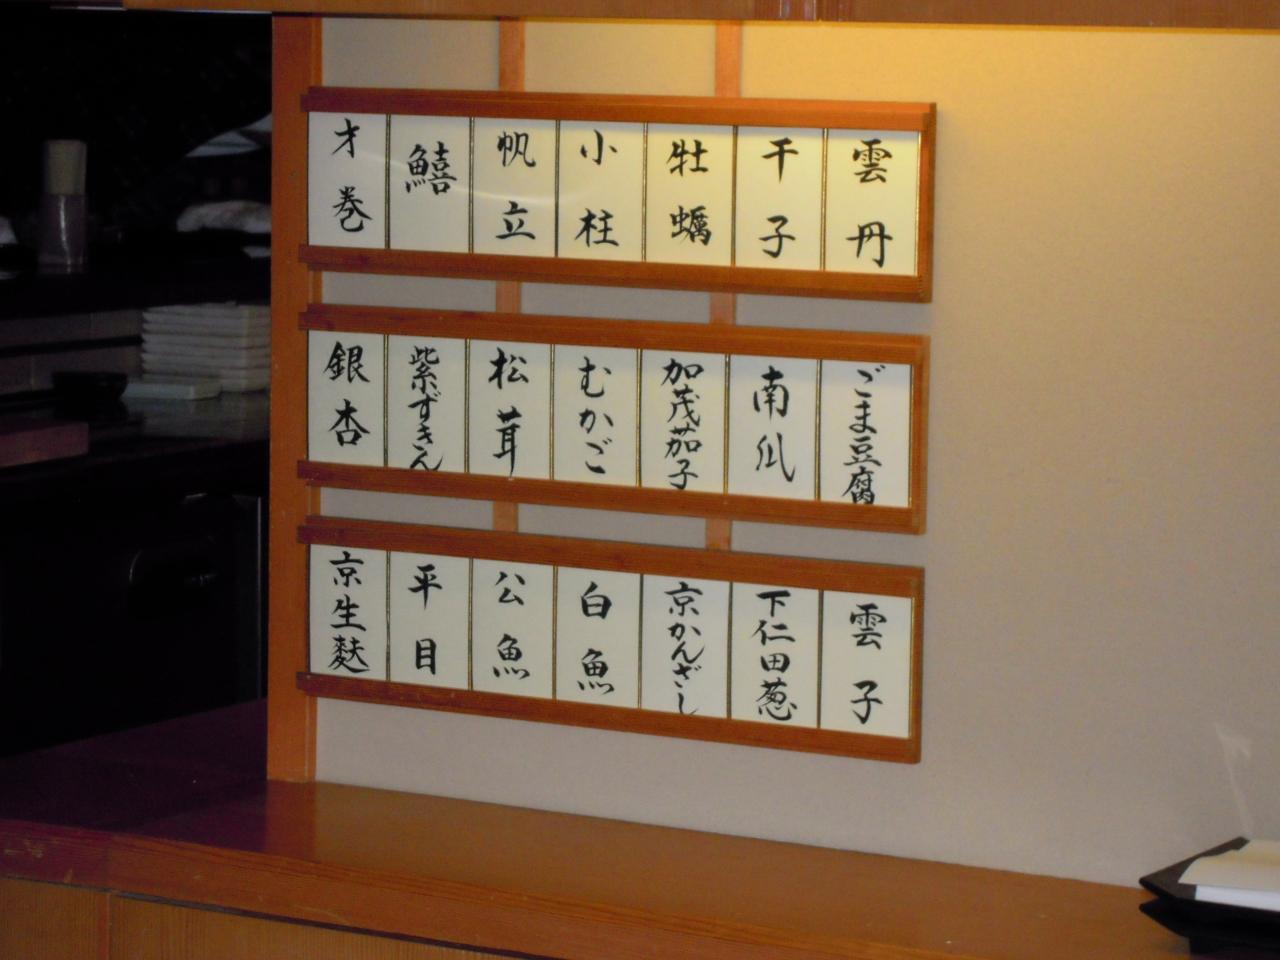 雲丹
干子
牡蠣
小柱
帆立
鱚
才巻
ごま豆腐
南瓜
加茂茄子
むかご
松茸
紫ずきん
銀杏
雲子
下仁田葱
京かんざし
白魚
公魚
平目
京生麩